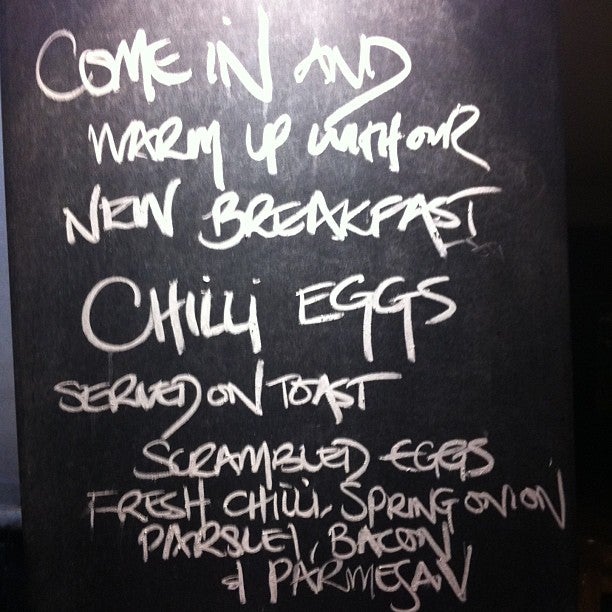 COME IN AND
WARM UP WITH OUR
NEW BREAKFAST
CHILLI EGGS
SERVED ON TOAST
SCRAMBLED EGGS
FRESH CHILLI, SPRING ONION
PARSLEY, BACON
& PARMESAN